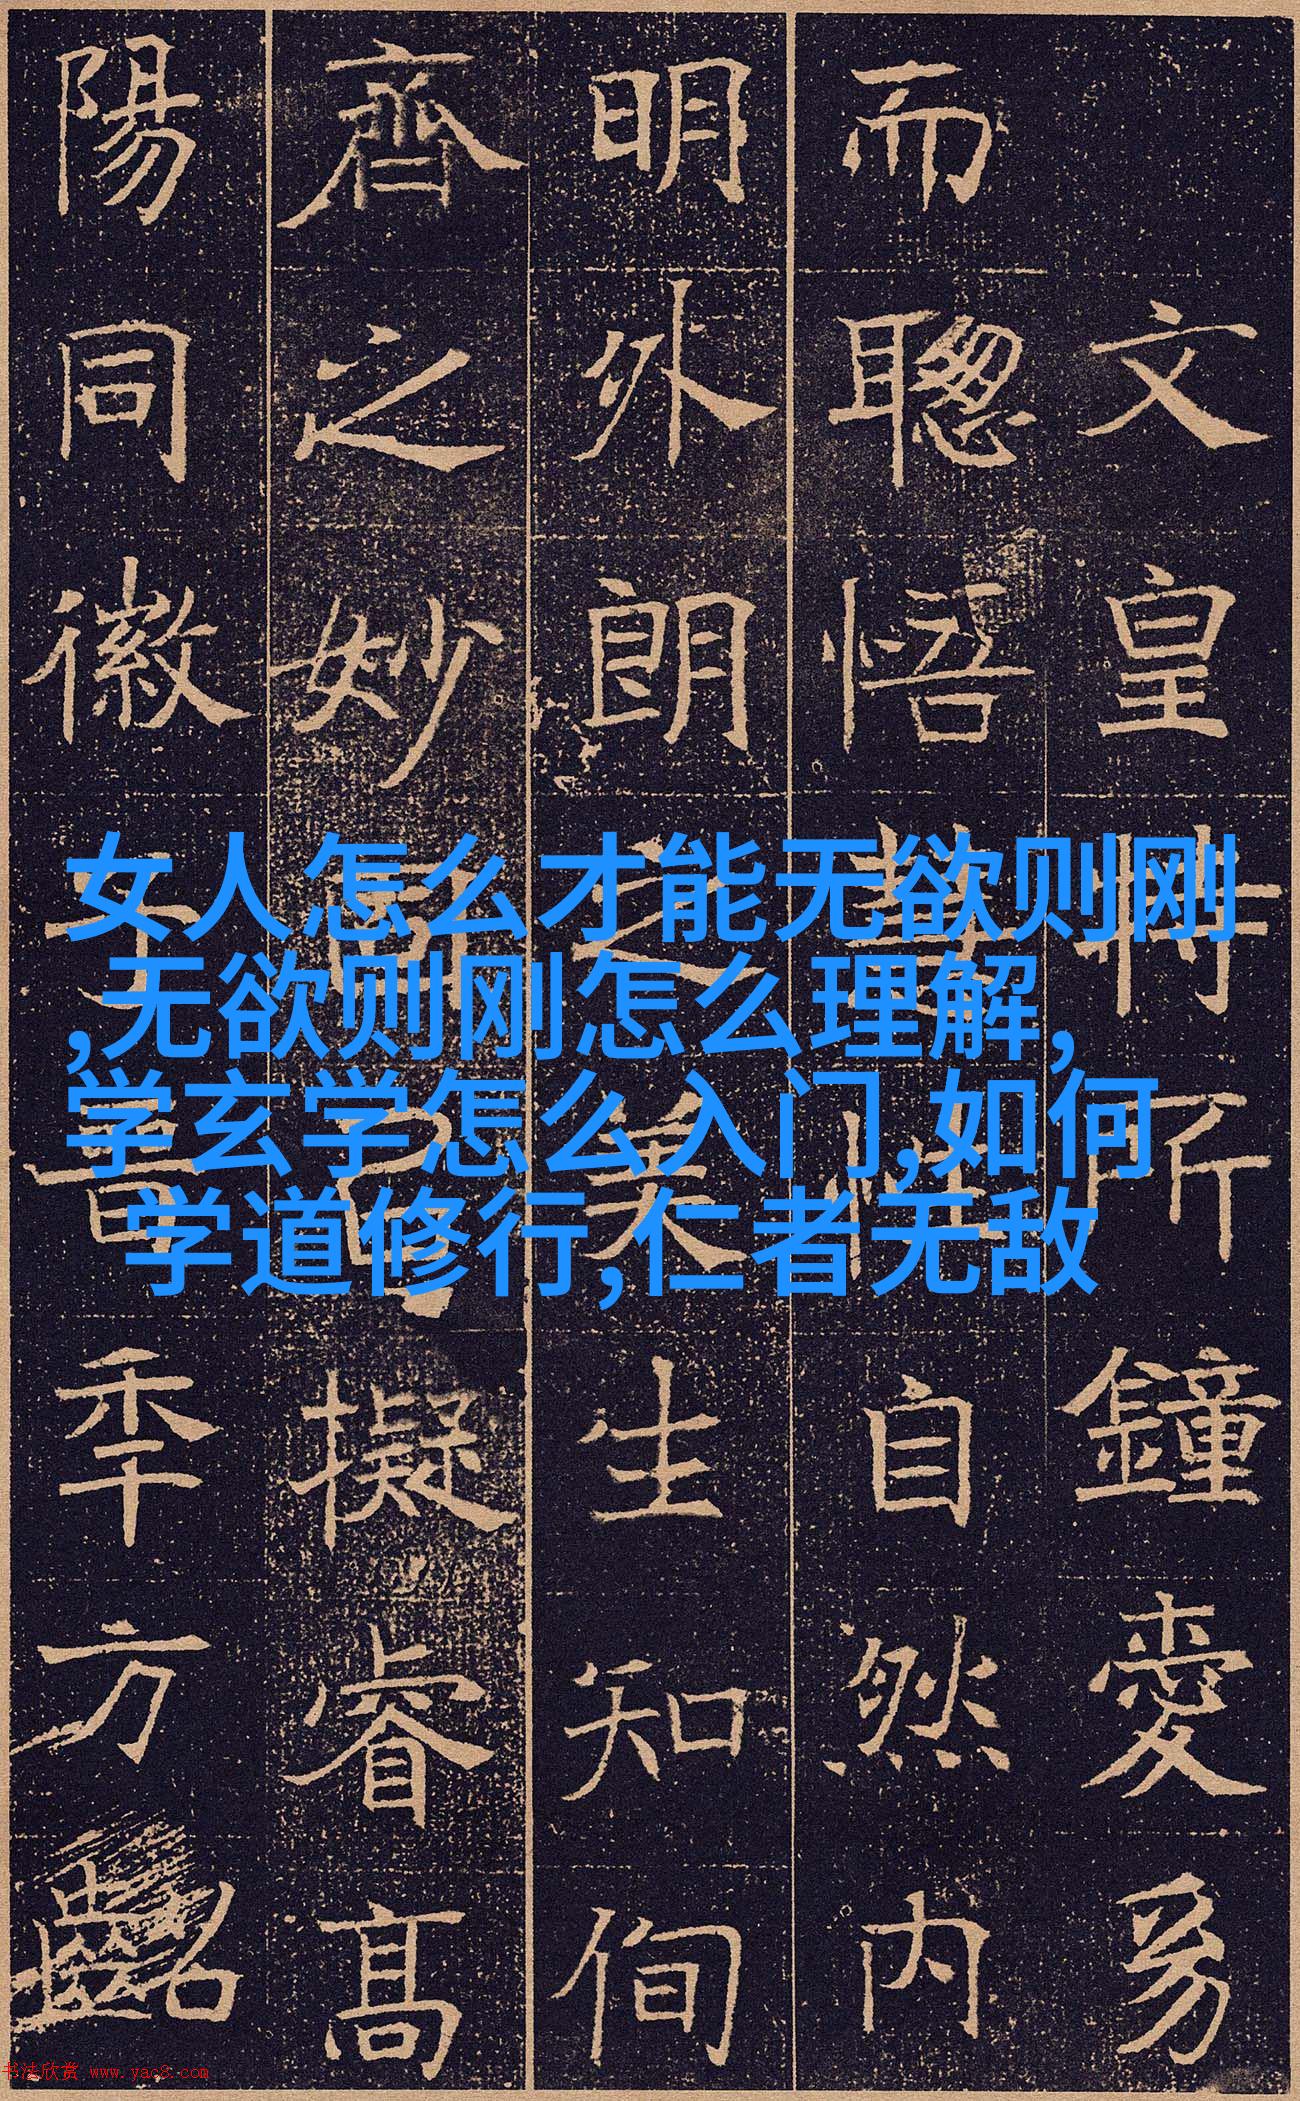 文皇所鐘愛
而聰悟性自然內
明外朗之美生知徇
齊之妙擬睿高
陽同徽子晉季方齠
女人怎么才能无欲则刚
,无欲则刚怎么理解,
学玄学怎么入门,如何
学道修行,仁者无敌
书法欣赏 www.yac8.com